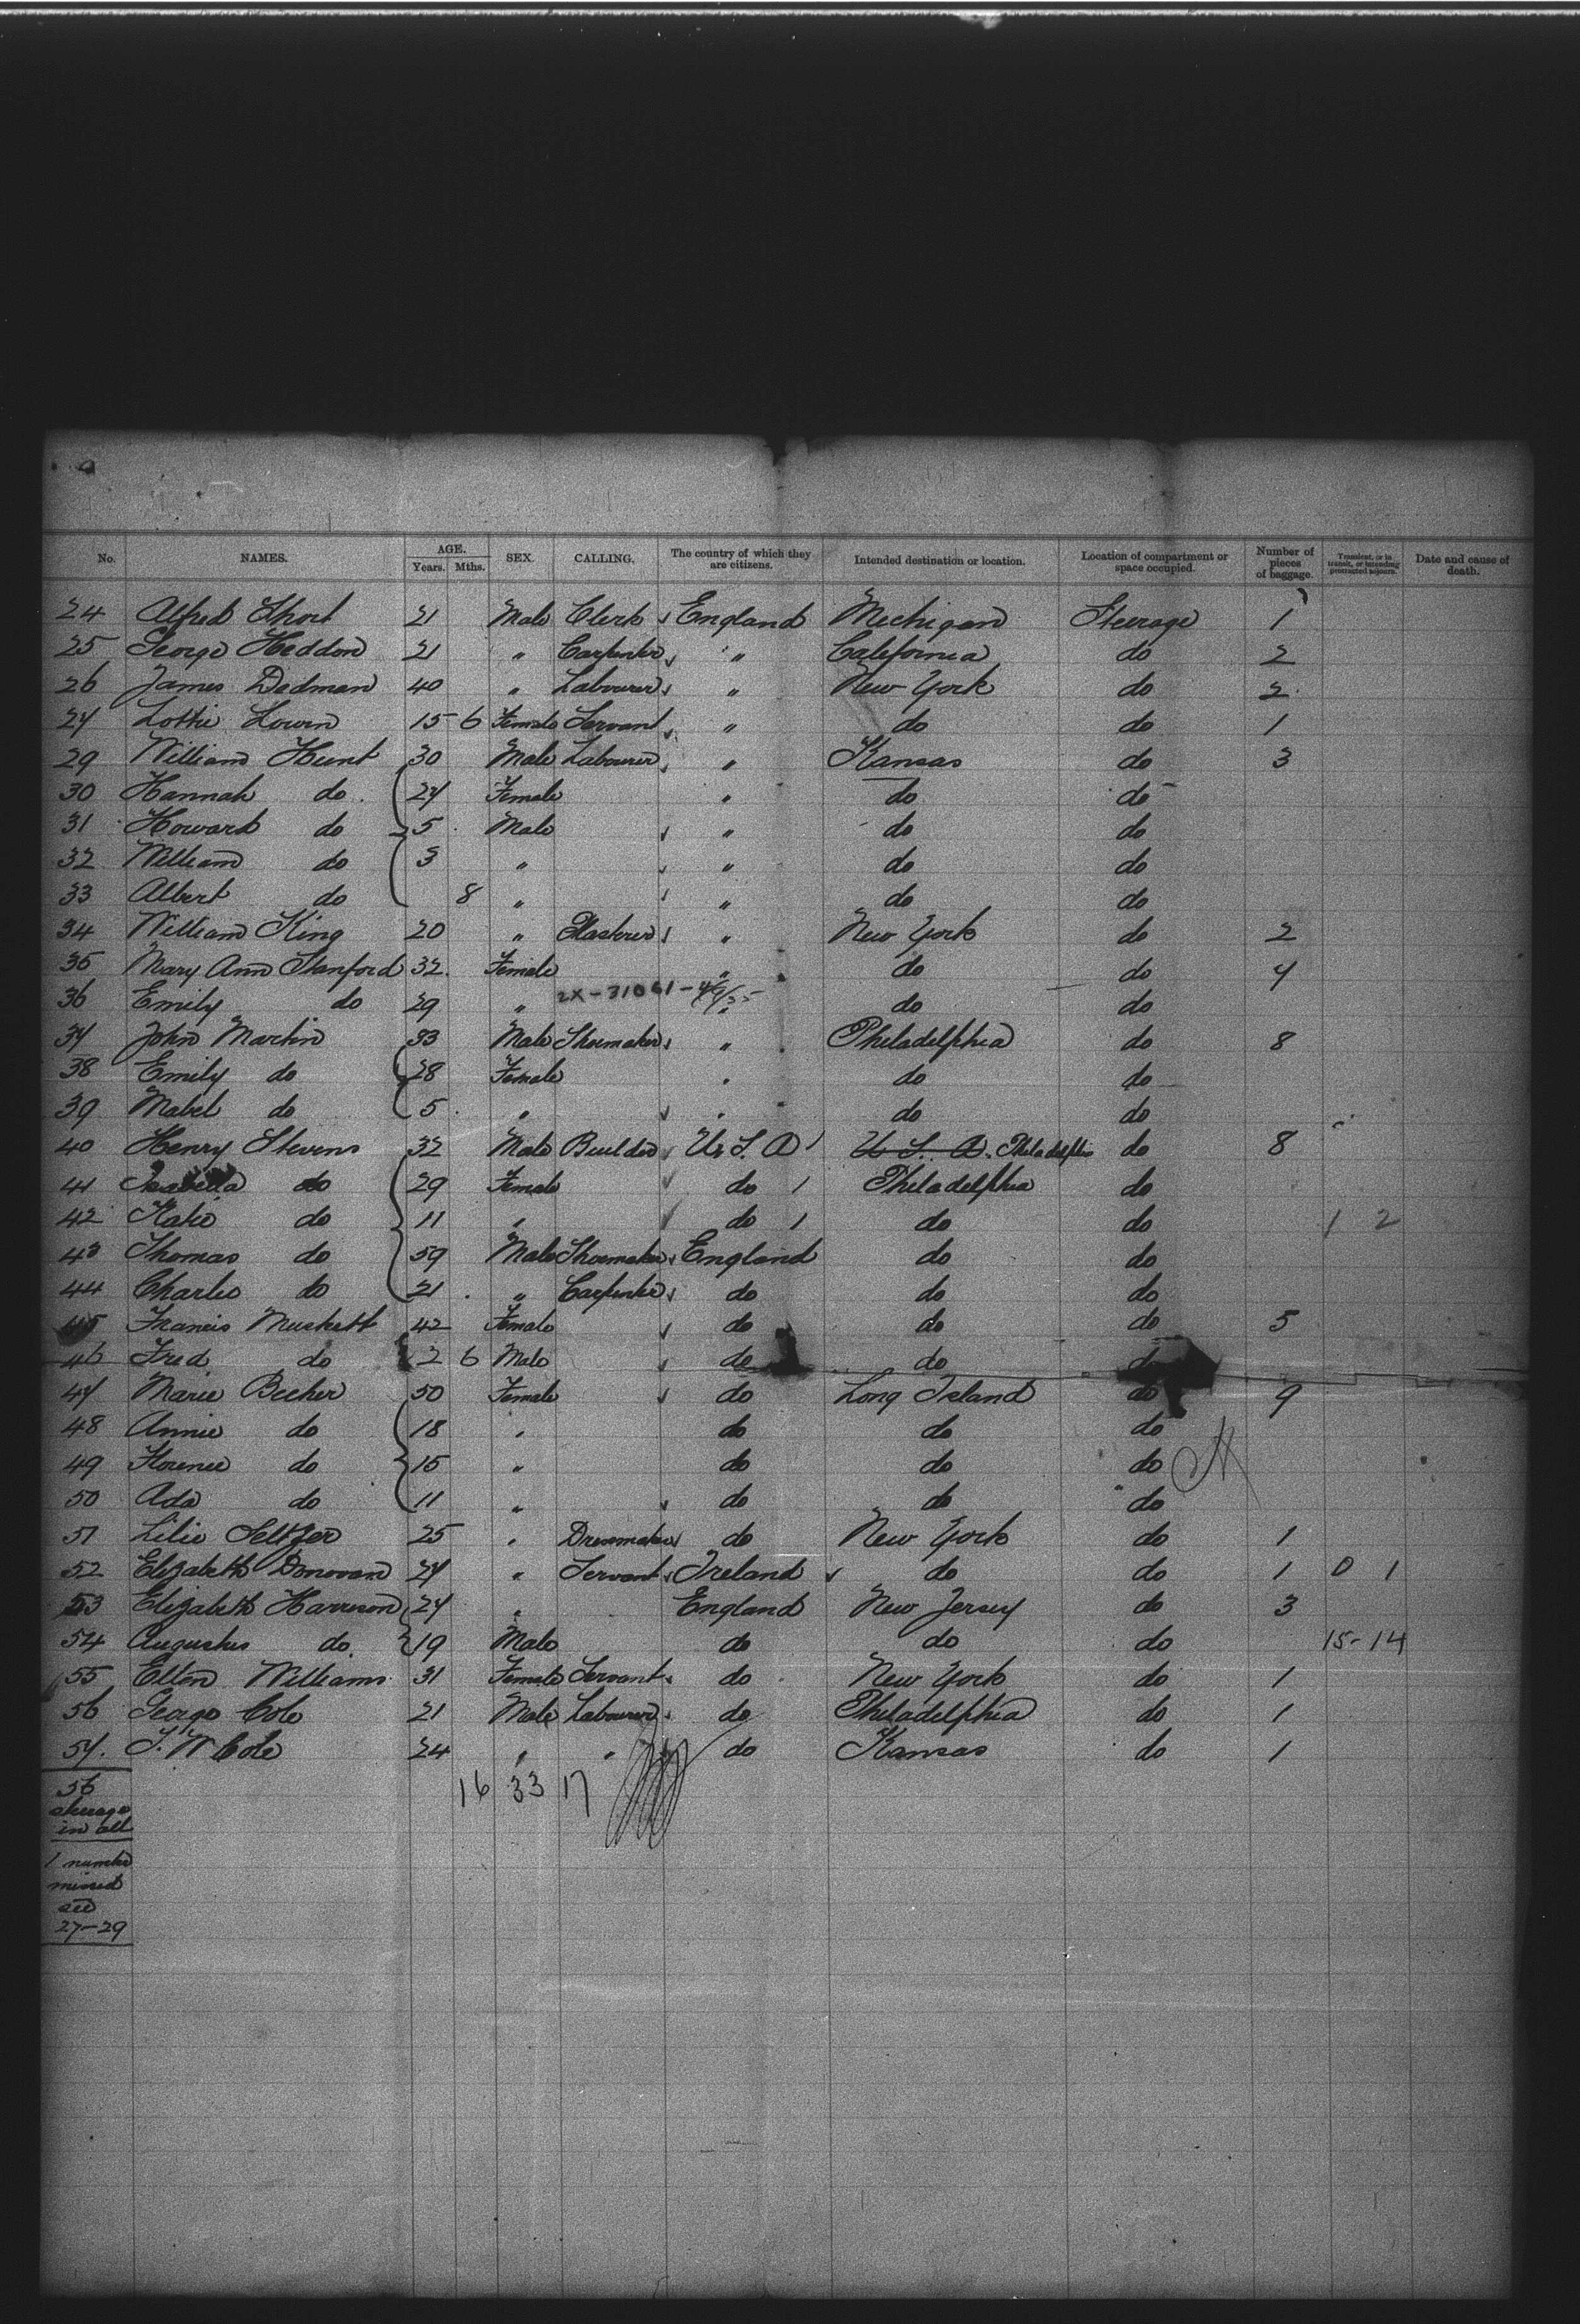 No. NAMES. AGE. Years. Mths. SEX. CALLING. The country of which they are citizens. Intended destination or location. Location of compartment or space occupied. Number of pieces of baggage. Transient, or in transit, or intending protracted sojourn. Date and cause of death.
24 Alfred Short 21 Male Clerk England Mechigan Steerage 1
25 George Heddon 21 " Carpenter " California do 2
26 James Dedman 40 " Labourer " New York do 2
27 Lottie Lowin 15 6 Female Servant " do do 1
29 William Hunt 30 Male Labourer " Kansas do 3
30 Hannah do 27 Female " do do
31 Howard do 5 Male " do do
32 William do 3 " " do do
33 Albert do 8 " " do do
34 William King 20 " Plasterer " New York do 2
35 Mary Ann Stanford 32 Female " do do 4
2X-31061-
36 Emily do 29 " " do do
37 John Martin 33 Male Shoemaker " Philadelphia do 8
38 Emily do 28 Female " do do
39 Mabel do 5 " " do do
40 Henry Stevens 32 Male Builder U. S. A U. S. A. Philadelphia do 8
41 do 29 Female do 1 Philadelphia do
42 Kate do 11 " do 1 do do 1 2
43 Thomas do 59 Male Shoemaker England do do
44 Charles do 21 " Carpenter do do do
45 Francis Muskett 42 Female do do do 5
46 Fred do 2 6 Male do do do
47 Marie Becker 50 Female do Long Island do 9
48 Annie do 18 " do do do
49 Florence do 15 " do do do
50 Ada do 11 " do do do
51 Lilie Seltzer 25 " Dressmaker do New York do 1
52 Elizabeth Donovan 27 " Servant Ireland do do 1 0 1
53 Elizabeth Harrison 27 " England New Jersey do 3
54 Augustus do 19 Male do do do 15-14
55 Ellen Williams 31 Female Servant do New York do 1
56 George Cole 21 Male Labourer do Philadelphia do 1
57. T. W Cole 24 " " do Kansas do 1
16 33 17
56
steerage
in all
1 number
missed
see
27-29